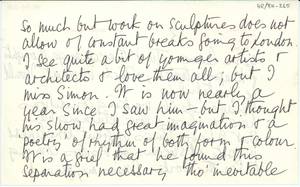 So much but work on sculptures does not
allow of constant breaks going to London.
I see quite a bit of younger artists &
architects & love them all; but I
miss Simon. It is now nearly a
year since I saw him – but, I thought
his show had great imagination & a
poetry of rhythm of both form & colour
It is a grief that he found this
separation necessary tho' inevitable